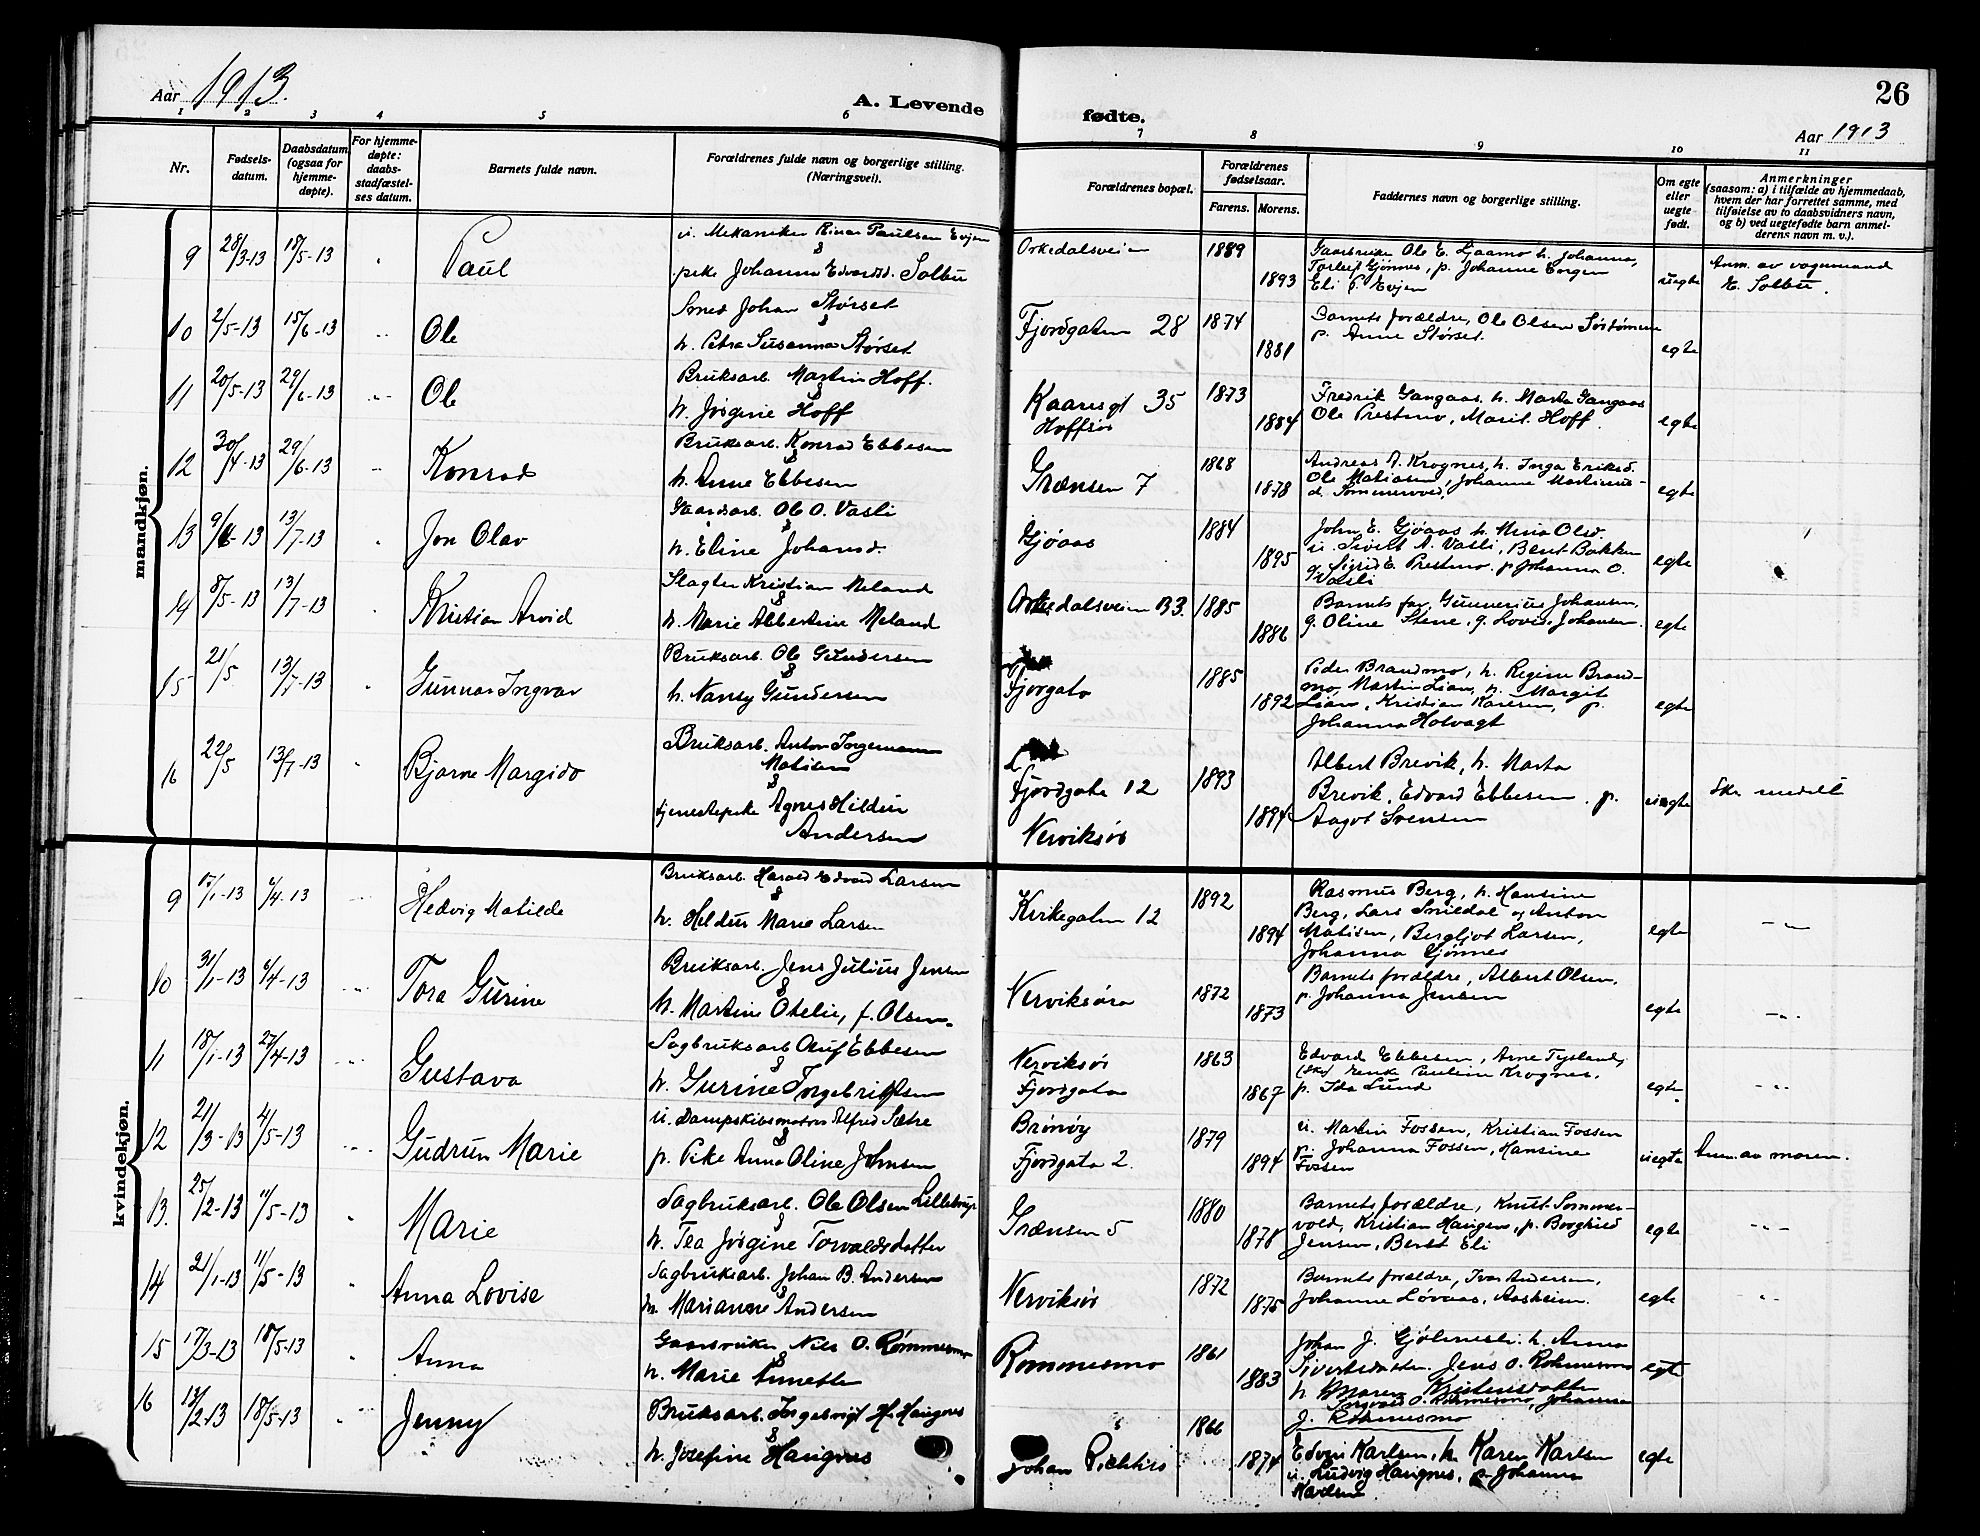 Aar 1913.
A. Levende
fødte.
26
Aar 1913
1 2 3 4 5 6 7 8 9 10 11
Nr.
Fødsels-
datum.
Daabsdatum
(ogsaa for
hjemme-
døpte).
For hjemme-
døpte:
daabs-
stadfæstel-
ses datum.
Barnets fulde navn.
Forældrenes fulde navn og borgerlige stilling.
(Næringsvei).
Forældrenes bopæl.
Forældrenes
fødselsaar.
Farens. Morens.
Faddernes navn og borgerlige stilling.
Om egte
eller
uegte-
født.
Anmerkninger
(saasom: a) i tilfælde av hjemmedaab,
hvem der har forrettet samme, med
tilføielse av to daabsvidners navn,
og b) ved uegtefødte barn anmel-
derens navn m. v.).
mandkjøn.
9 28/3-13 18/5-13 Paul
u. Mekaniker Einar Paulsen Evjen
&
pike Johanna Edvardsd. Solbu
Orkedalsveien 1889
1893
Gaardbruker Ole E. Ljaamo h. Johanna,
Torleif Gjønnes, p. Johanne Engen
Eli Evjen
uegte
Anm. av vognmand
E. Solbu.
10 2/5-13 15/6-13 Ole
Smed Johan Størset
&
h. Petra Susanna Størset
Fjordgaten 28 1874
1881
Barnets forældre, Ole Olsen
p. Anne Størset
egte
11 20/5-13 29/6-13 Ole
Bruksarb. Martin Hoff.
&
h. Jørgine Hoff
Kaaresgt 35
Hoffsør
1873
1884
Fredrik Gangaas, h. Marta Gangaas
Ole Prestmo, Marit Hoff.
egte
12 30/4-13 29/6-13 Konrad
Bruksarb. Konrad Ebbesen
&
h. Anne Ebbesen
Grænsen 7 1868
1878
Andreas A. Krognes, h. Inga Eriksd.
Ole Matiasen, Johanne Martinus-
d. Sommervold,
egte
13 13/7-13 Jon Olav
Gaardarb. Ole O. Vasli
&
h. Eline Johansd.
Gjøaas 1884
1895
John E. Gjøaas h. Mina Olsd.
u. Sivert A. Vasli, Bent Bakken
g. Sigrid E. Prestmo p. Johanna O.
Vasli
egte
14 8/5-13 13/7-13 Kristian Arvid
Slagter Kristian Meland
&
h. Marie Albertine Meland
Orkedalsveien 1885
1886
Barnets far, Gunnerius Johansen,
g. Oline Stene, g. Lovise Johansen.
egte
15 21/5 13/7-13 Gunnar Ingvar
Bruksarb. Ole Gundersen
&
h. Nancy Gundersen
Fjorgata 1885
1892
Peder Brandmo, h. Regine Brand-
mo, Martin Lian, h. Margit
Lian, Kristian Karlsen, p.
Johanna Holvagt
egte
16 22/5 13/7-13 Bjarne Margido
Bruksarb. Anton Ingemann
Matisen
&
tjenestepike Agnes Hildur
Andersen
Fjordgata 12
Nerviksør
1893
1894
Albert Brevik, h. Marta
Brevik, Edvard Ebbesen. p.
Aagot Svensen
uegte
kvindekjøn.
9 17/1-13 6/4-13 Hedvig Matilde
Bruksarb. Harald Edvard Larsen
&
h. Hildur Marie Larsen
Kvikegaten 12 1892
1894
Rasmus Berg, h. Hansine
Berg, Lars Snildal og Anton
Matisen, Bergljot Larsen,
Johanna Gjønnes
egte
10 31/1-13 6/4-13 Tora Gurine
Bruksarb. Jens Julius Jensen
&
h. Martine Otelie, f. Olsen.
Nerviksøra 1872
1873
Barnets forældre, Albert Olsen,
p. Johanna Jensen
egte
11 18/1-13 27/4-13 Gustava
Sagbruksarb Oluf Ebbesen
&
h. Gurine Ingebrigtsen
Nerviksør
Fjordgata
1863
1867
Edvard Ebbesen, Arne Tysland,
Enk. Pauline Krognes,
p. Ida Lund
egte
12 21/3-13 4/5-13 Gudrun Marie
u. Dampskibsmatros Alfred Sætre
&
p. Pike Anna Oline Johnsen
Brønøy
Fjordgata 2.
1879
1894
u. Martin Fossen, Kristian Fossen
p. Johanna Fossen, Hansine
Fossen
uegte
Anm. av moren.
13. 25/2-13 11/5-13 Marie
Sagbruksarb. Ole Olsen
&
h. Tea Jørgine Torvaldsdatter
Grænsen 5 1880
1878
Barnets forældre, Knut Sommer-
vold, Kristian Haugen, p. Borghild
Jensen, Beret Eli
egte
14 21/1-13 11/5-13 Anna Lovise
Sagbruksarb. Johan B. Andersen
&
h. Marianne Andersen
Nerviksør 1872
1875
Barnets forældre, Ivar Andersen,
Johanne Løvaas, Aasheim.
egte
15 17/3-13 18/5-13 Anna
Gaardbruker Nils O. Rømmesmo
&
h. Marie Annette
Rømmesmo 1861
1883
Johan J. Gjølmesli h. Anna
Sivertsdatter. Jens O. Rømmesmo
h. Maren Kristensdatter
Ingvald O. Rømmesmo, Johanna
J. Rømmesmo
egte
16 18/5-13 Jenny
Bruksarb. Ingebrigt H. Haugnes
&
h. Josefine Haugnes
Johan 1866
1874
Edvin Karlsen, h. Karen Karlsen
u. Ludvig Haugnes, p. Johanna
Karlsen
egte